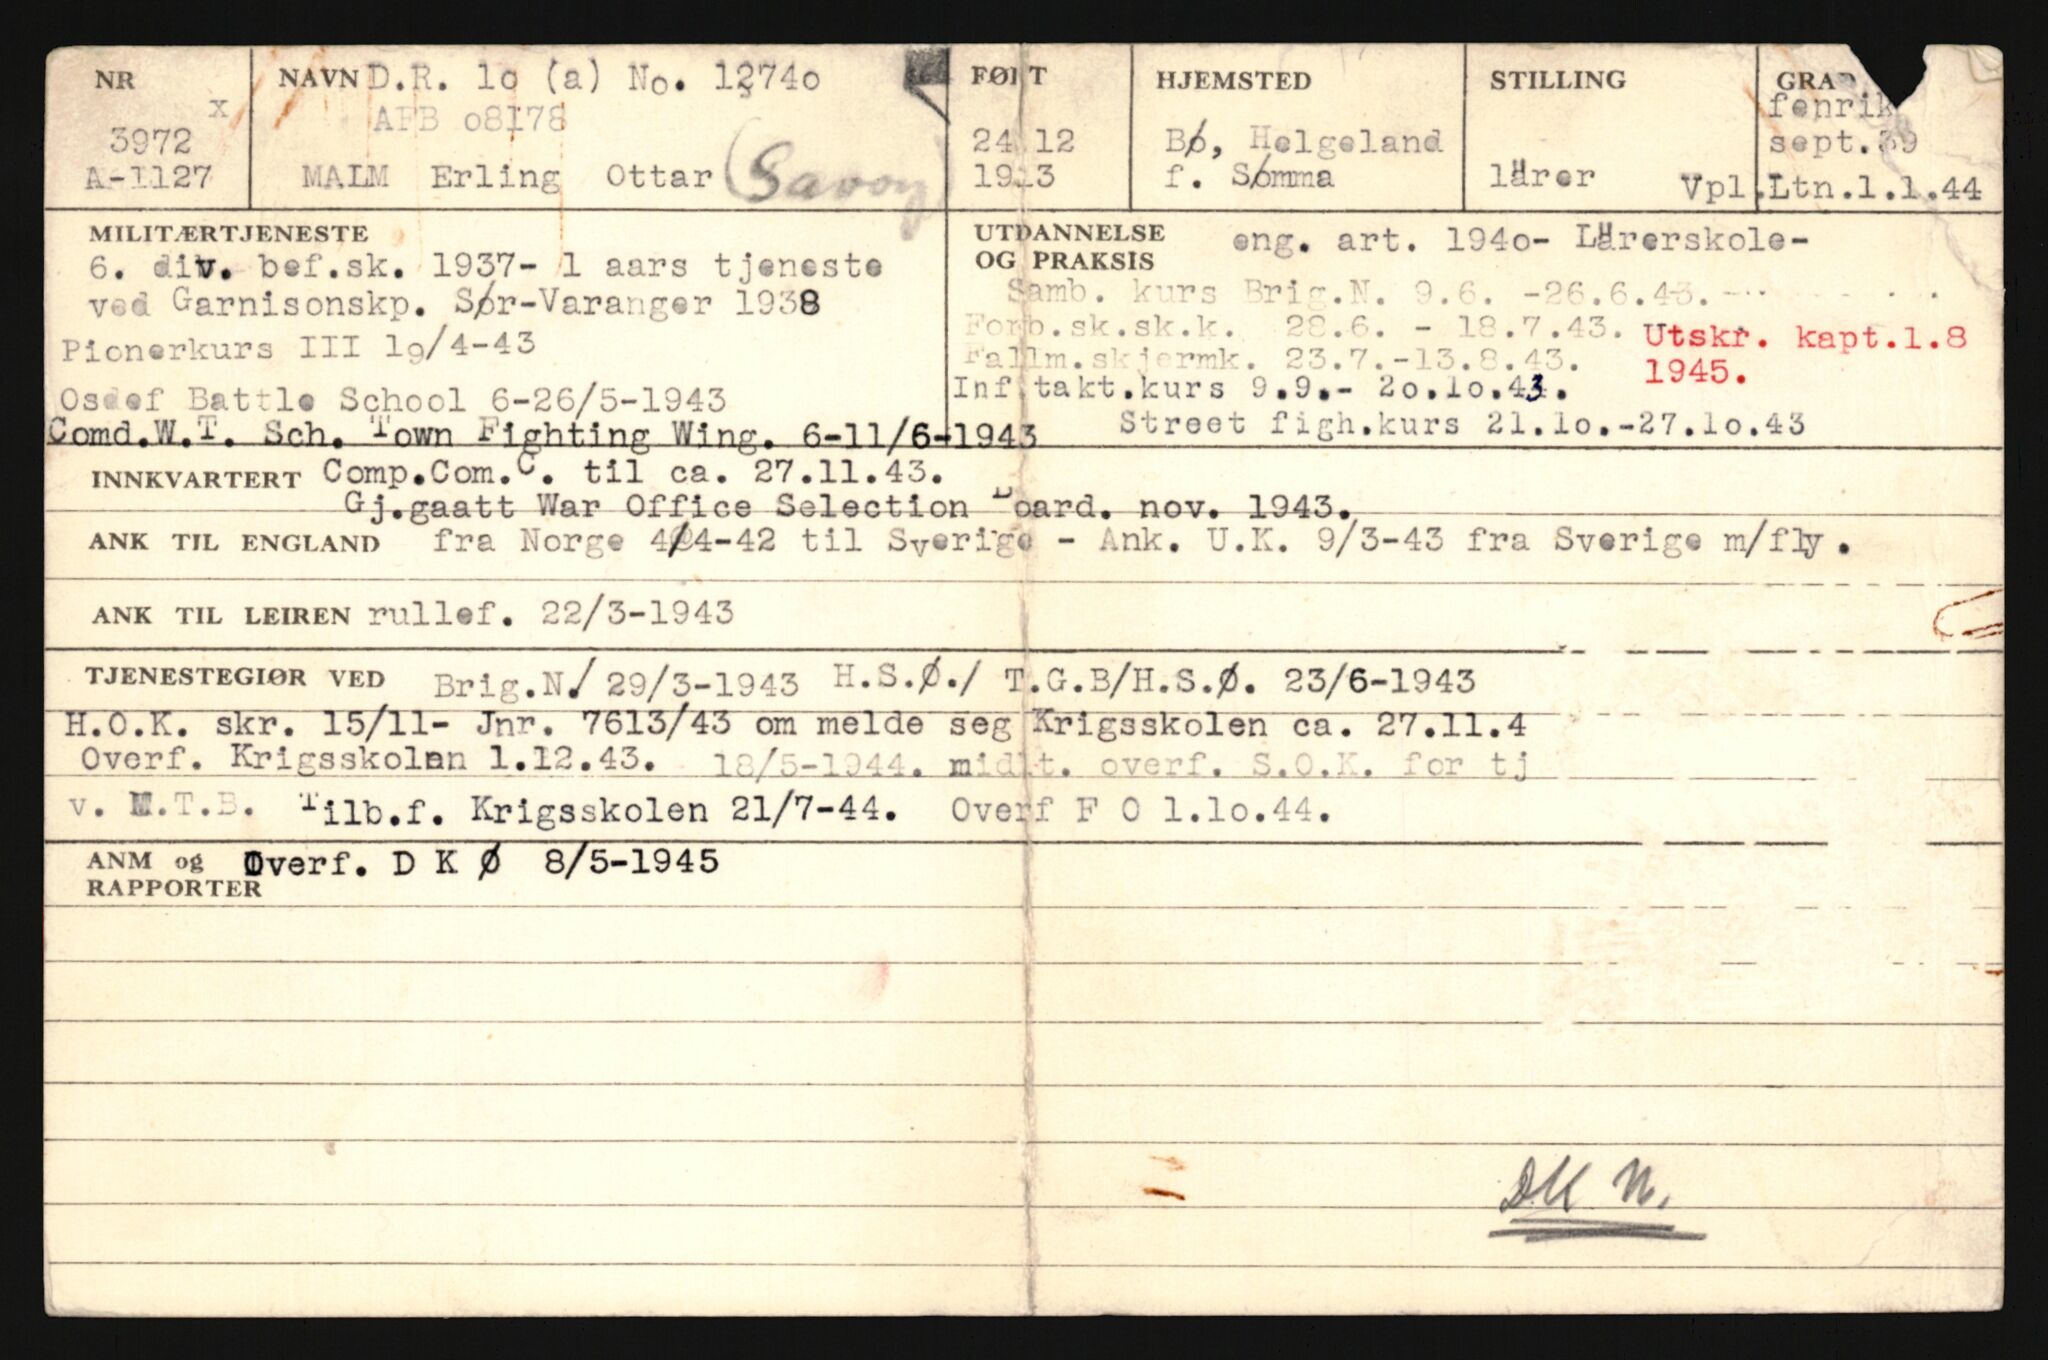 NR x 3972 A-1127
NAVN D.R. lo (a) No. 12740
AFB 08178
MALM Erling Ottar (Savoy)
FØDT 24 12 1913
HJEMSTED Bø, Helgeland
f. Sømma
STILLING lärer
GRAD fenrik
sept.39
Vpl.Ltn.1.1.44
MILITÆRTJENESTE
6. div. bef.sk. 1937- 1 aars tjeneste
ved Garnisonskp. Sør-Varanger 1938
Pionerkurs III 19/4-43
Osdef Battle School 6-26/5-1943
Comd.W.T. Sch. Town Fighting Wing. 6-11/6-1943
UTDANNELSE OG PRAKSIS eng. art. 1940- Lärerskole-
Samb. kurs Brig.N. 9.6. -26.6.43.
Forb.sk.sk.k. 28.6. - 18.7.43.
Fallm.skjermk. 23.7.-13.8.43.
Utskr. kapt.1.8
1945.
Inf takt.kurs 9.9.- 20.10.43.
Street figh.kurs 21.10.-27.10.43
INNKVARTERT Comp.Com.C. til ca. 27.11.43.
Gj.gaatt War Office Selection Board. nov. 1943.
ANK TIL ENGLAND fra Norge 4/4-42 til Sverige - Ank. U.K. 9/3-43 fra Sverige m/fly.
ANK TIL LEIREN rullef. 22/3-1943
TJENESTEGJØR VED Brig.N./ 29/3-1943 H.S.Ø./ T.G.B/H.S.Ø. 23/6-1943
H.O.K. skr. 15/11- Jnr. 7613/43 om melde seg Krigsskolen ca. 27.11.4
Overf. Krigsskolen 1.12.43. 18/5-1944. midlt. overf. S.O.K. for tj
v. M.T.B. Tilb.f. Krigsskolen 21/7-44. Overf F O 1.10.44.
ANM og RAPPORTER Overf. D K Ø 8/5-1945
DK N.